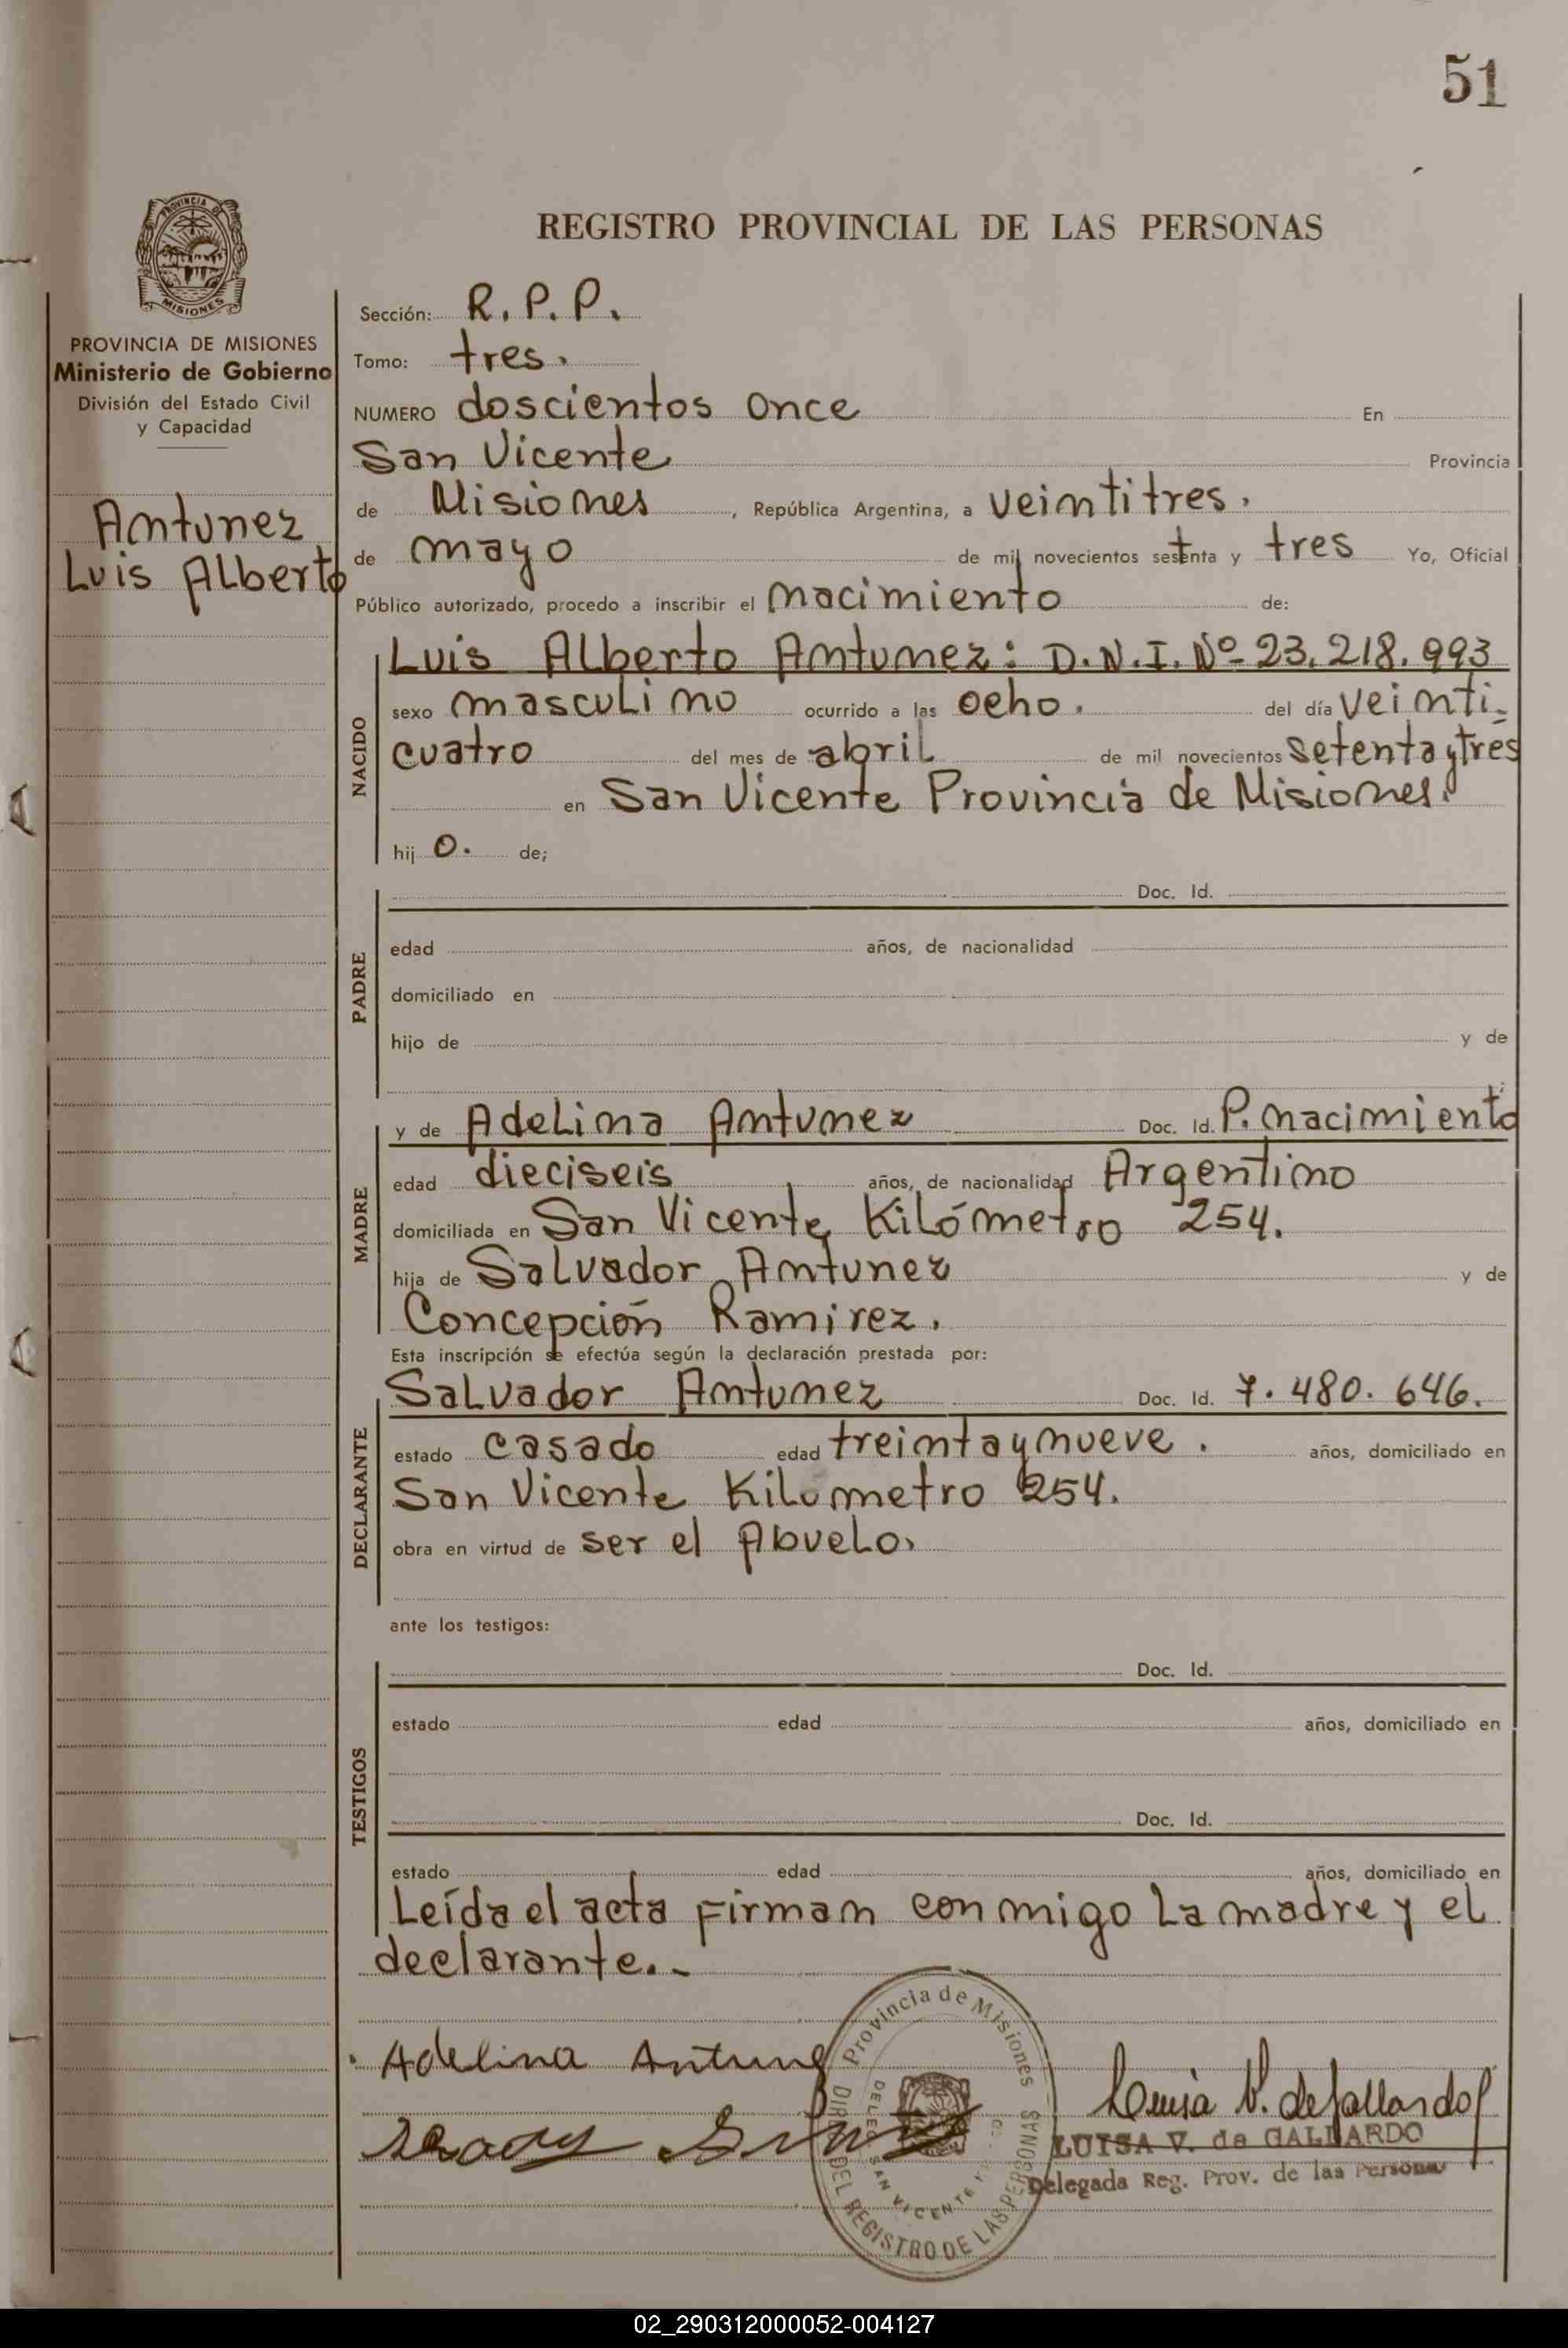 51
PROVINCIA DE
MISIONES
PROVINCIA DE MISIONES
Ministerio de Gobierno
División del Estado Civil
y Capacidad
Antunez
Luis Alberto
REGISTRO PROVINCIAL DE LAS PERSONAS
Sección: R.P.P.
Tomo: tres.
NUMERO doscientos once En
San Vicente Provincia
de Misiones, República Argentina, a veintitres.
de mayo de mil novecientos setenta y tres Yo, Oficial
Público autorizado, procedo a inscribir el nacimiento de:
NACIDO
Luis Alberto Antunez: D.N.I. Nº 23.218.993
sexo masculino ocurrido a las ocho. del día veinti-
cuatro del mes de abril de mil novecientos setenta y tres
en San Vicente Provincia de Misiones.
hij o. de;
PADRE
Doc. Id.
edad años, de nacionalidad
domiciliado en
hijo de y de
MADRE
y de Adelina Antunez Doc. Id. P. nacimiento
edad dieciseis años, de nacionalidad Argentino
domiciliada en San Vicente Kilómetro 254.
hija de Salvador Antunez y de
Concepción Ramirez.
Esta inscripción se efectúa según la declaración prestada por:
DECLARANTE
Salvador Antunez Doc. Id. 7.480.646.
estado casado edad treinta y nueve. años, domiciliado en
San Vicente Kilometro 254.
obra en virtud de ser el Abuelo.
ante los testigos:
TESTIGOS
Doc. Id.
estado edad años, domiciliado en
Doc. Id.
estado edad años, domiciliado en
Leída el acta firman conmigo la madre y el
declarante.-
Adelina Antunez
Provincia de Misiones
DIR. DEL REGISTRO DE LAS PERSONAS
DELEG. SAN VICENTE
Luisa V. de Gallardo
LUISA V. de GALLARDO
Delegada Reg. Prov. de las Personas
02_290312000052-004127